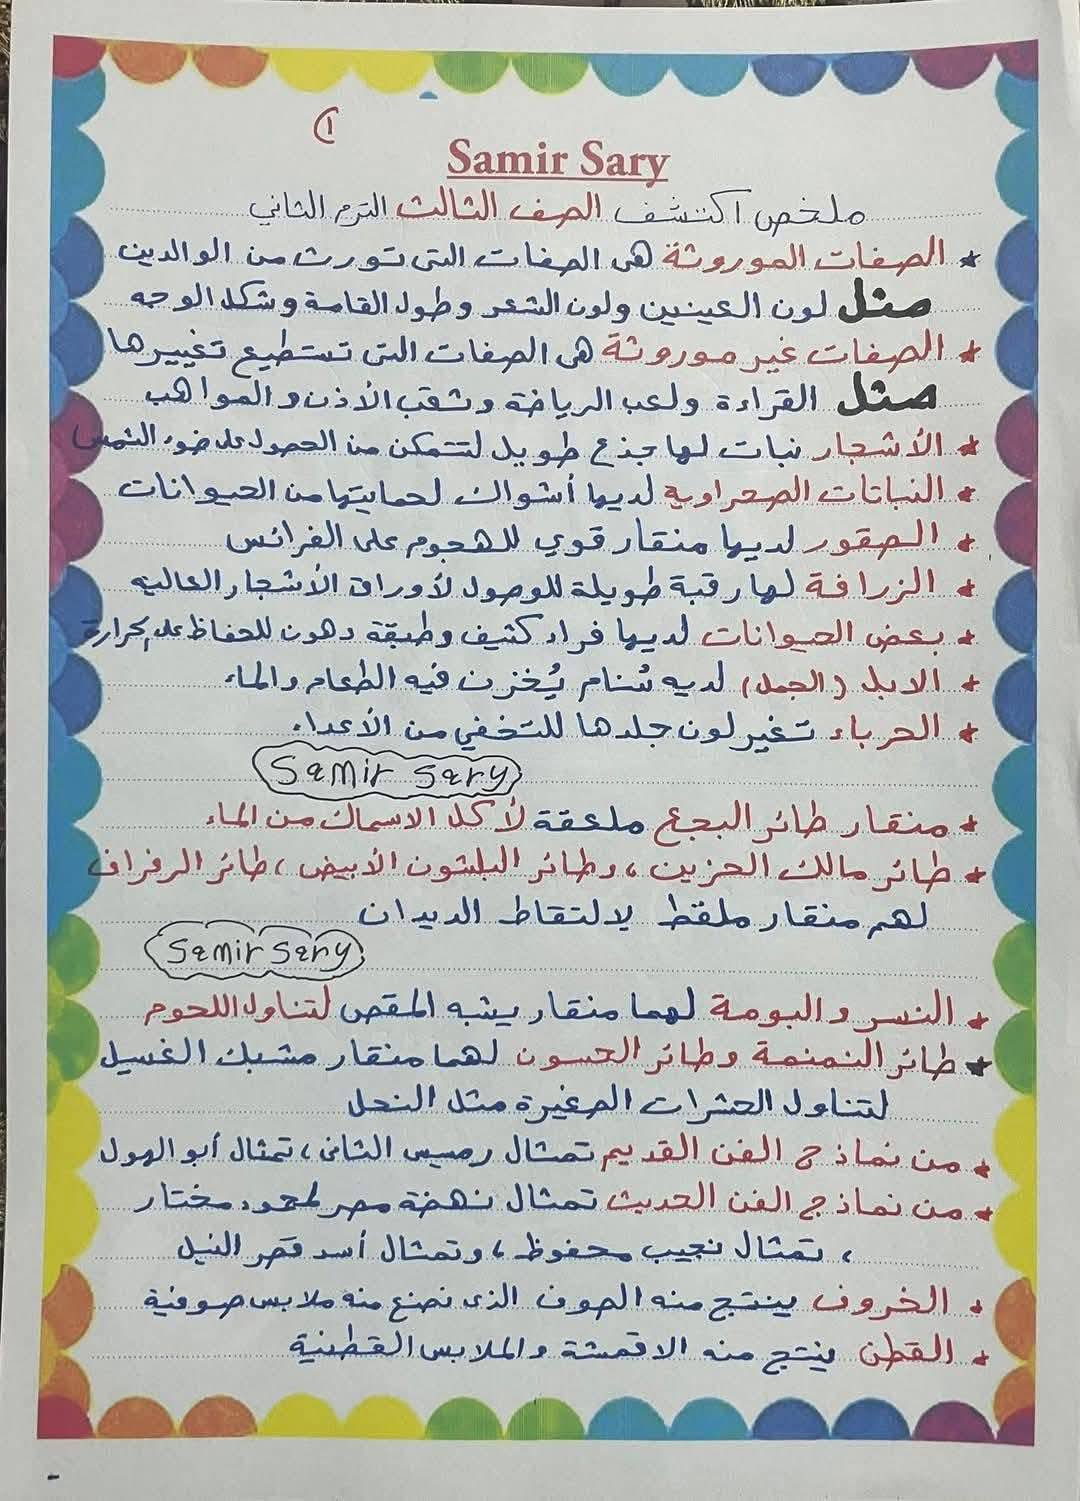 ١
Samir Sary
ملخص اكتشف الصف الثالث الترم الثاني
* الصفات الموروثة هى الصفات التى تورث من الوالدين
مثل لون العينين ولون الشعر وطول القامة وشكل الوجه
* الصفات غير موروثة هى الصفات التى تستطيع تغييرها
مثل القراءة ولعب الرياضة وثقب الأذن والمواهب
* الأشجار نباتات لها جذع طويل لتتمكن من الحصول على ضوء الشمس
* النباتات الصحراوية لديها أشواك لحمايتها من الحيوانات
* الصقور لديها منقار قوي للهجوم على الفرائس
* الزرافة لها رقبة طويلة للوصول لأوراق الأشجار العالية
* بعض الحيوانات لديها فراء كثيف وطبقة دهون للحفاظ على حرارة
* الابل (الجمل) لديه سنام يُخزن فيه الطعام والماء
* الحرباء تغير لون جلدها للتخفي من الأعداء
Samir Sary
* منقار طائر البجع ملعقة لأكل الاسماك من الماء
* طائر مالك الحزين ، وطائر البلشون الأبيض ، طائر الرفراف
لهم منقار ملقط لالتقاط الديدان
Samir Sary
* النسر والبومة لهما منقار يشبه المقص لتناول اللحوم
* طائر النمنمة وطائر الحسون لهما منقار مشبك الغسيل
لتناول الحشرات الصغيرة مثل النحل
* من نماذج الفن القديم تمثال رمسيس الثانى ، تمثال أبو الهول
* من نماذج الفن الحديث تمثال نهضة مصر لمحمود مختار
، تمثال نجيب محفوظ ، وتمثال أسد قصر النيل
* الخروف ينتج منه الصوف الذى نصنع منه ملابس صوفية
* القطن ينتج منه الاقمشة والملابس القطنية